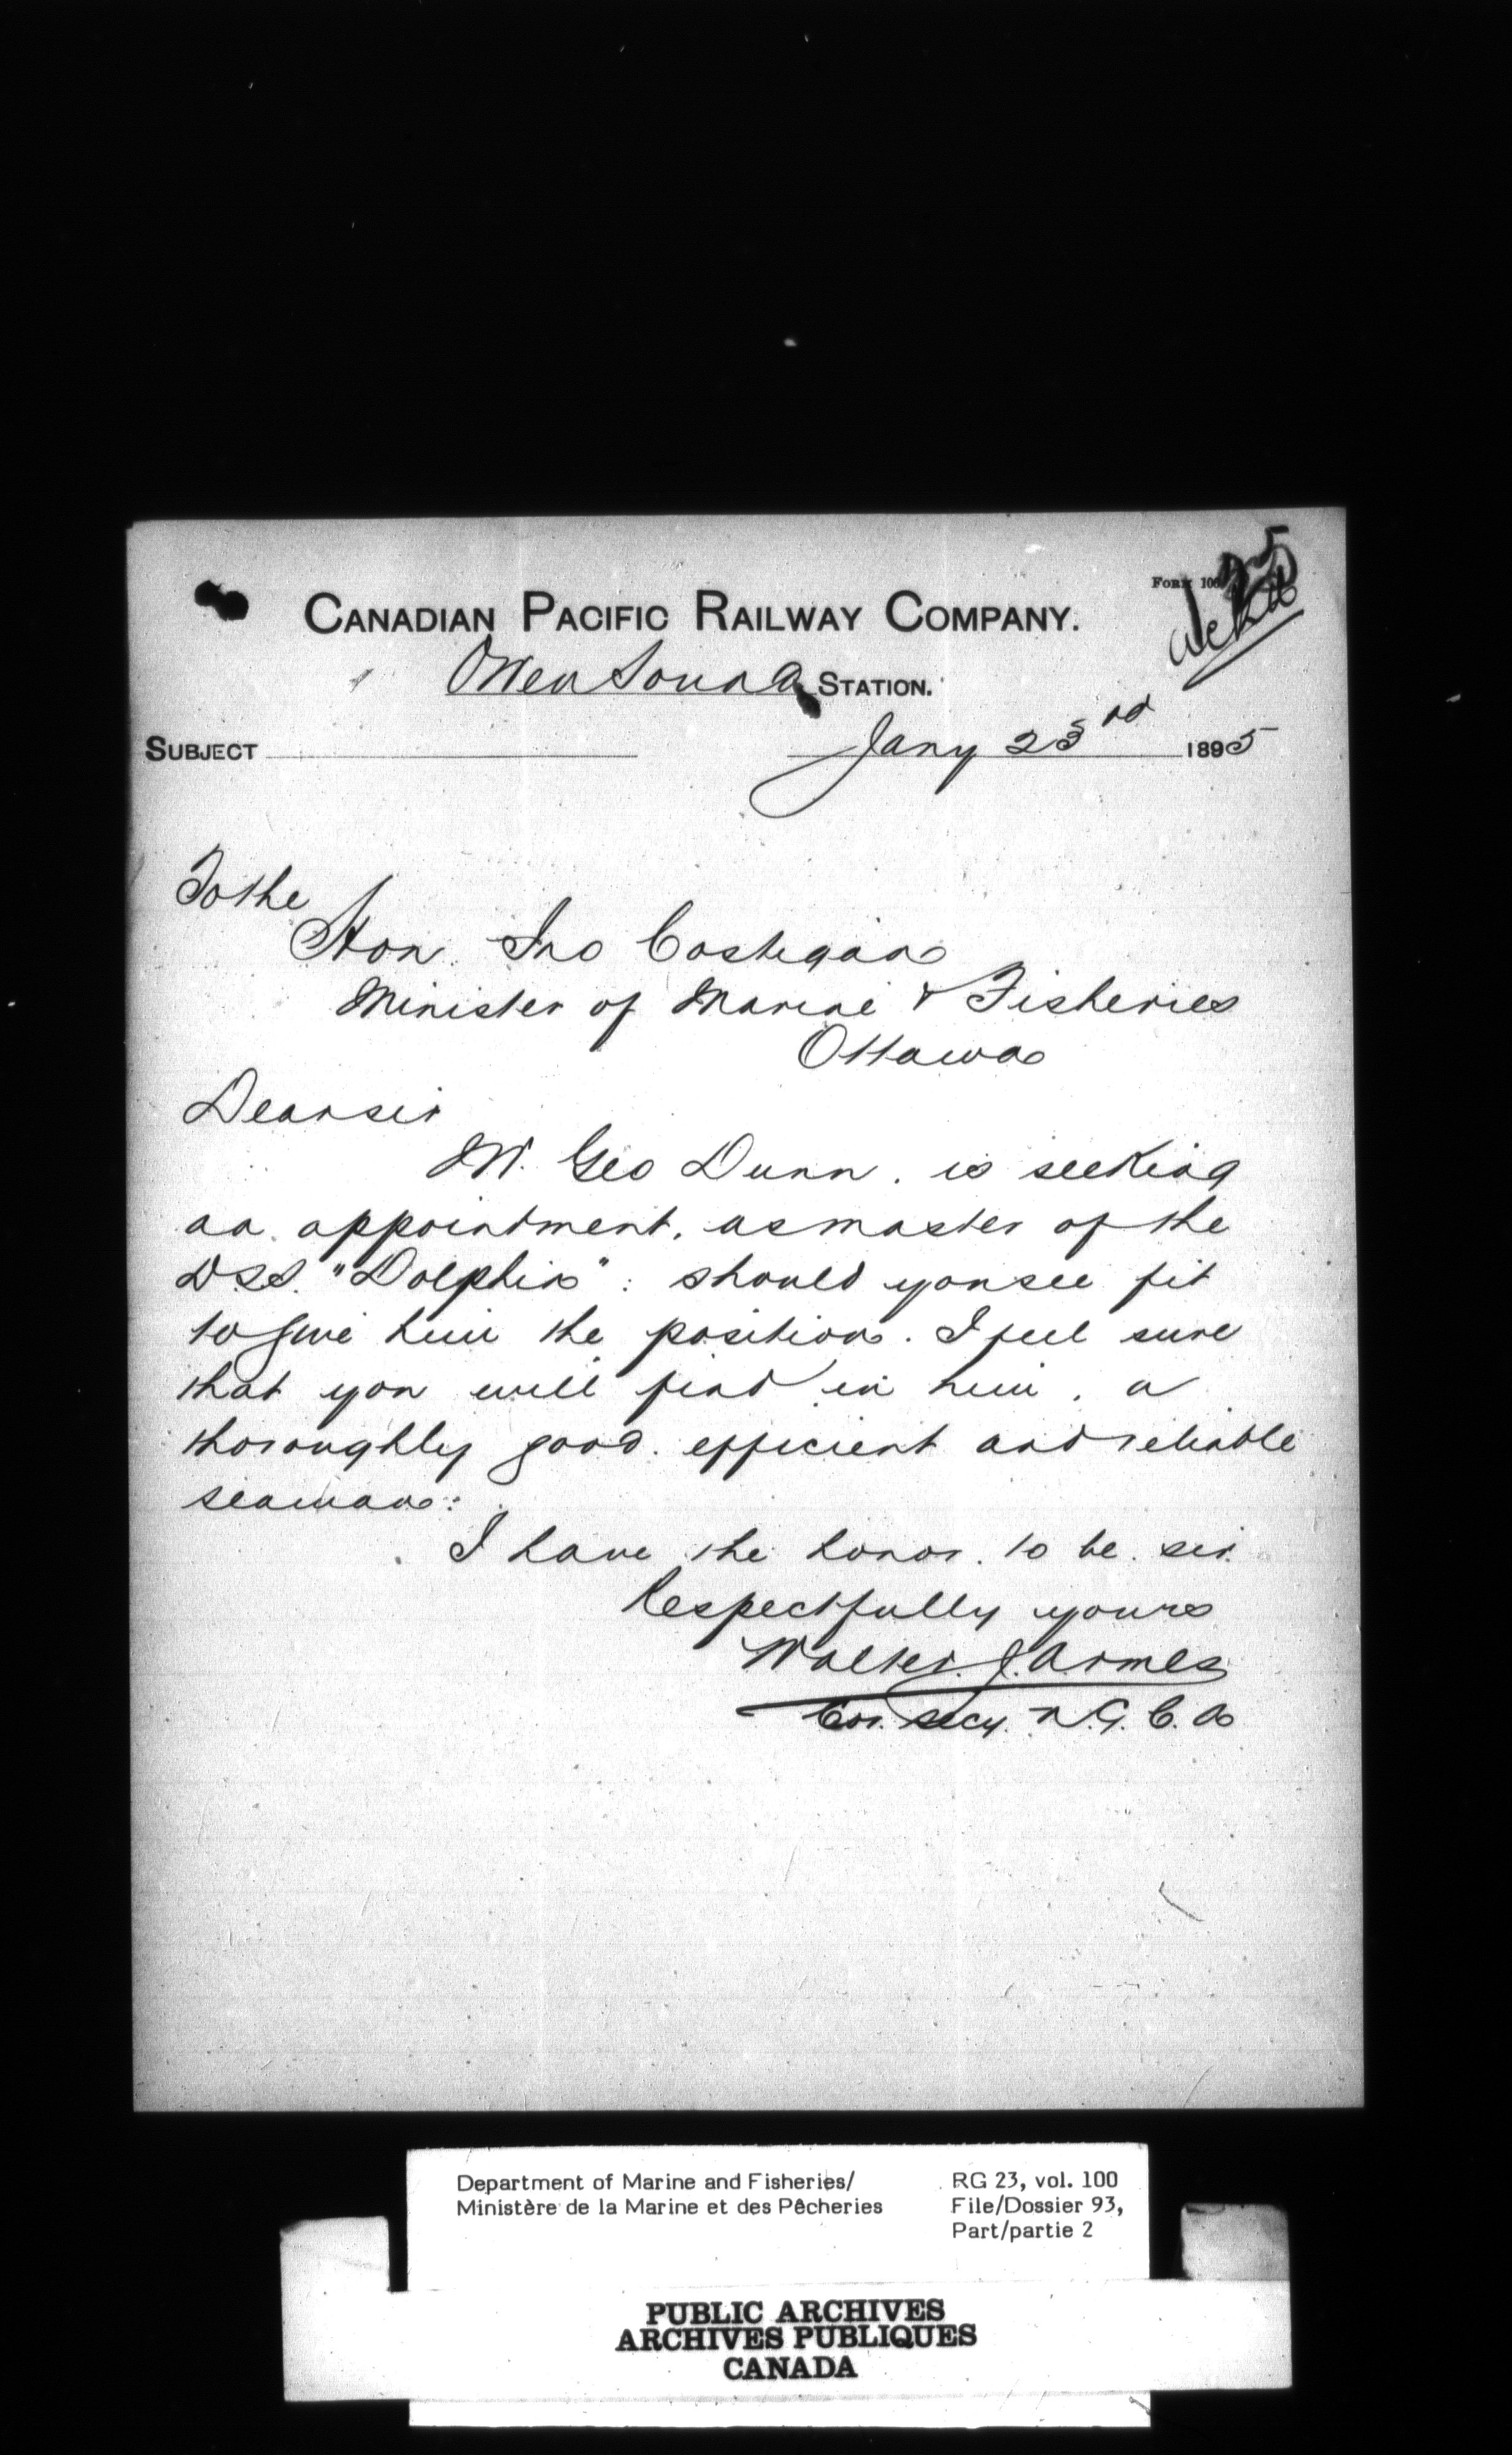 Form 100
35
Ackd
CANADIAN PACIFIC RAILWAY COMPANY.
Owen Sound STATION.
SUBJECT Jany 23rd 1895
To the
Hon. Jno Costigan
Minister of Marine & Fisheries
Ottawa
Dear sir
M. Geo Dunn. is seeking
an. appointment. as master of the
D.S.S. "Dolphin": should you see fit
to give him the position. I feel sure
that you will find in him. a
thoroughly good. efficient and reliable
seaman:
I have the honor. to be. sir.
Respectfully yours
Walter. J. Armes
Cor. Secy. G. C. A
Department of Marine and Fisheries/ RG 23, vol. 100
Ministère de la Marine et des Pêcheries File/Dossier 93,
Part/partie 2
PUBLIC ARCHIVES
ARCHIVES PUBLIQUES
CANADA